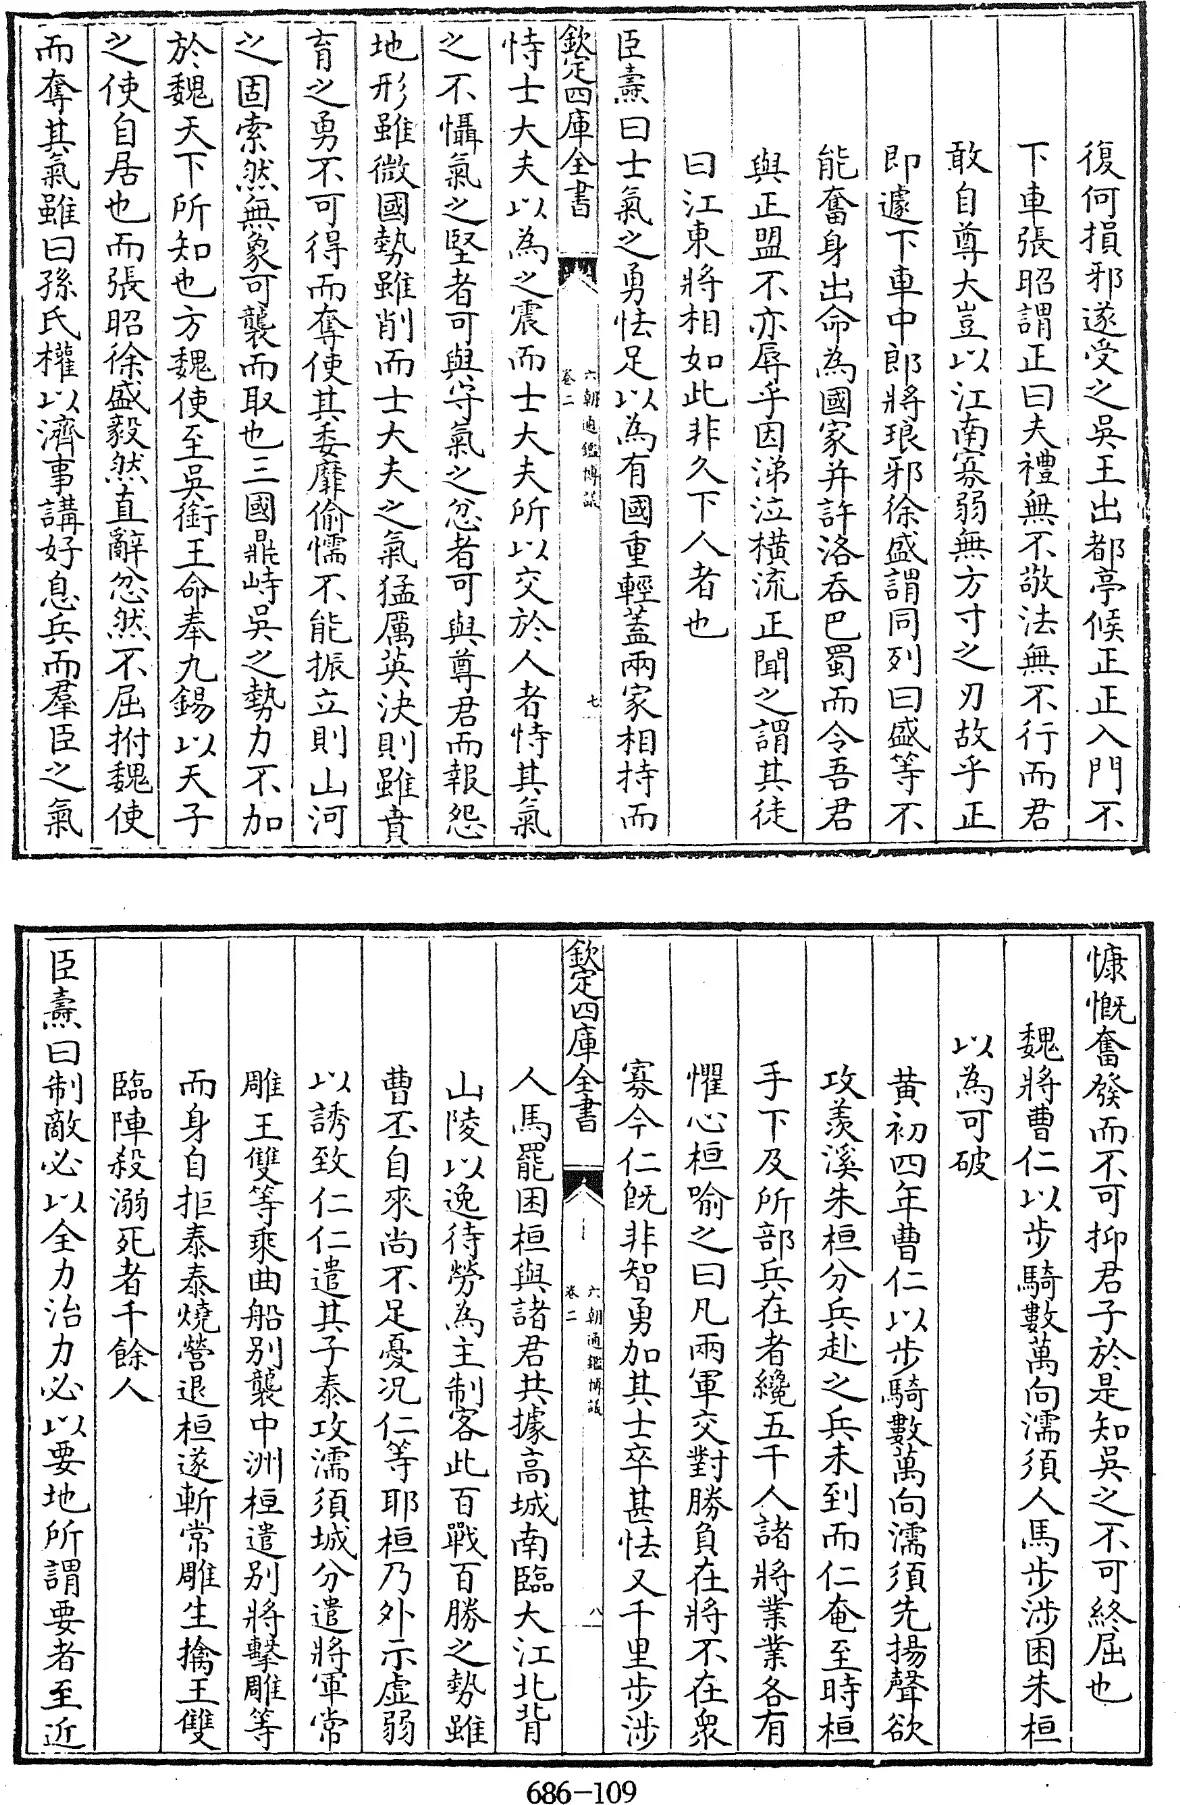 復何損邪遂受之吳王出都亭候正正入門不
下車張昭謂正曰夫禮無不敬法無不行而君
敢自尊大豈以江南寡弱無方寸之刃故乎正
即遽下車中郎將琅邪徐盛謂同列曰盛等不
能奮身出命為國家并許洛吞巴蜀而令吾君
與正盟不亦辱乎因涕泣橫流正聞之謂其徒
曰江東將相如此非久下人者也
臣燾曰士氣之勇怯足以為有國重輕蓋兩家相持而
欽定四庫全書
六朝通鑑博議
卷二
七
恃士大夫以為之震而士大夫所以交於人者恃其氣
之不懾氣之堅者可與守氣之忿者可與尊君而報怨
地形雖微國勢雖削而士大夫之氣猛厲英決則雖賁
育之勇不可得而奪使其委靡偷懦不能振立則山河
之固索然無象可襲而取也三國鼎峙吳之勢力不加
於魏天下所知也方魏使至吳銜王命奉九錫以天子
之使自居也而張昭徐盛毅然直辭忿然不屈拊魏使
而奪其氣雖曰孫氏權以濟事講好息兵而羣臣之氣
慷慨奮發而不可抑君子於是知吳之不可終屈也
魏將曹仁以步騎數萬向濡須人馬步涉困朱桓
以為可破
黄初四年曹仁以步騎數萬向濡須先揚聲欲
攻羨溪朱桓分兵赴之兵未到而仁奄至時桓
手下及所部兵在者纔五千人諸將業業各有
懼心桓喻之曰凡兩軍交對勝負在將不在衆
寡今仁既非智勇加其士卒甚怯又千里步涉
欽定四庫全書
六朝通鑑博議
卷二
八
人馬罷困桓與諸君共據高城南臨大江北背
山陵以逸待勞為主制客此百戰百勝之勢雖
曹丕自來尚不足憂况仁等耶桓乃外示虛弱
以誘致仁仁遣其子泰攻濡須城分遣將軍常
雕王雙等乘曲船别襲中洲桓遣别將擊雕等
而身自拒泰泰燒營退桓遂斬常雕生擒王雙
臨陣殺溺死者千餘人
臣燾曰制敵必以全力治力必以要地所謂要者至近
686-109